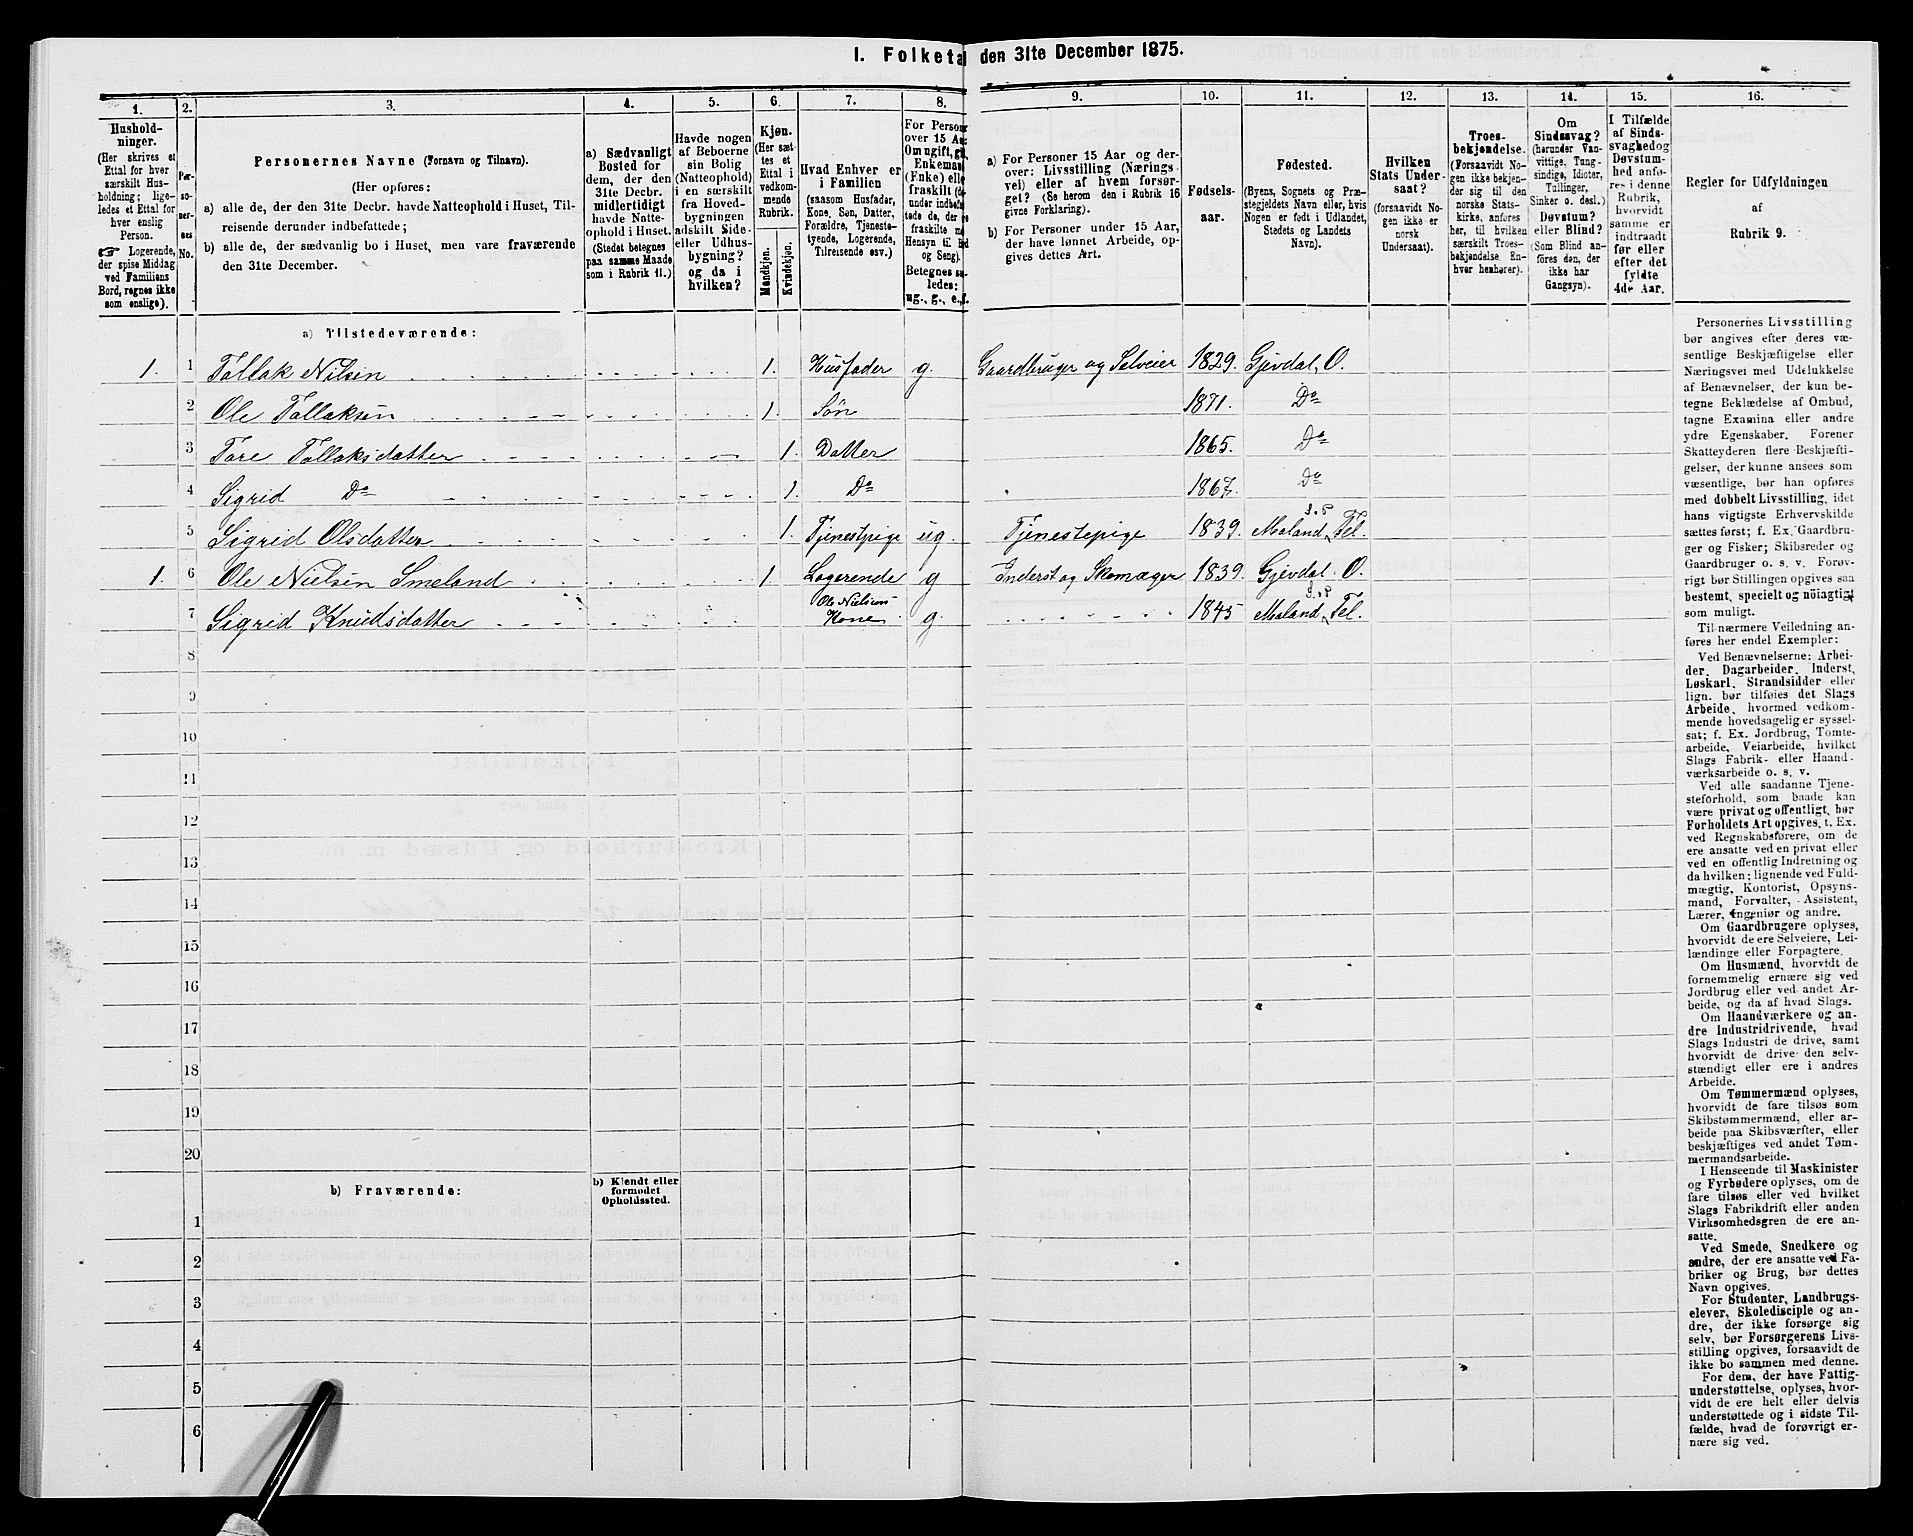 1. Folketal den 31te December 1875.
1. 2. 3. 4. 5. 6. 7. 8. 9. 10. 11. 12. 13. 14. 15. 16.
Hushold-
ninger.
(Her skrives et
Ettal for hver
særskilt Hus-
holdning; lige-
ledes et Ettal for
hver enslig
Person.
☞ Logerende,
der spise Middag
ved Familiens
Bord, regnes ikke
som enslige).
Per-
so-
ner-
nes
No.
Personernes Navne (Fornavn og Tilnavn).
(Her opføres:
a) alle de, der den 31te Decbr. havde Natteophold i Huset, Til-
reisende derunder indbefattede;
b) alle de, der sædvanlig bo i Huset, men vare fraværende
den 31te December.
a) Sædvanligt
Bosted for
dem, der den
31te Decbr.
midlertidigt
havde Natte-
ophold i Huset.
(Stedet betegnes
paa samme Maade
som i Rubrik 11.)
Havde nogen
af Beboerne
sin Bolig
(Natteophold)
i en særskilt
fra Hoved-
bygningen
adskilt Side-
eller Udhus-
bygning?
og da i
hvilken?
Kjøn.
(Her sæt-
tes et
Ettal i
vedkom-
mende
Rubrik.
Mandkjøn.
Kvindekjøn.
Hvad Enhver er
i Familien
(saasom Husfader,
Kone, Søn, Datter,
Forældre, Tjeneste-
tyende, Logerende,
Tilreisende osv.)
For Personer
over 15 Aar:
Om ugift, gift,
Enkemand
(Enke) eller
fraskilt
Hensyn til Bord
og Seng).
Betegnes saa-
ledes:
ug., g., e., f.
a) For Personer 15 Aar og der-
over: Livsstilling (Nærings-
vei) eller af hvem forsør-
get? (Se herom den i Rubrik 16
givne Forklaring).
b) For Personer under 15 Aar,
der have lønnet Arbeide, op-
gives dettes Art.
Fødsels-
aar.
Fødested.
(Byens, Sognets og Præ-
stegjeldets Navn eller, hvis
Nogen er født i Udlandet,
Stedets og Landets
Navn).
Hvilken
Stats Under-
saat?
(forsaavidt No-
gen ikke er
norsk
Undersaat).
Troes-
bekjendelse.
(Forsaavidt No-
gen ikke bekjen-
der sig til den
norske Stats-
kirke, anføres
her, til hvilken
særskilt Troes-
bekjendelse. En-
hver henhører).
Om
Sindssvag?
(herunder Van-
vittige, Tung-
sindige, Idioter,
Tullinger,
Sinker o. desl.)
Døvstum?
eller Blind?
(Som Blind an-
føres den, der
ikke har
Gangsyn).
I Tilfælde
af Sinds-
svaghed og
Døvstum-
hed anfø-
res i denne
Rubrik,
hvorvidt
samme er
indtraadt
før eller
efter det
fyldte
4de Aar.
Regler for Udfyldningen
af
Rubrik 9.
a) Tilstedeværende:
1. 1 Tallak Nilsen 1. Husfader g. Gaardbruger og Selveier 1829. Gjevdal, O.
2 Ole Tallaksen 1. Søn 1871. Do
3 Tore Tallaksdatter 1. Datter 1865. Do
4 Sigrid Do 1. Do 1867. Do
5 Sigrid Olsdatter 1. Tjenestpige ug. Tjenestepige 1839. Moland S.P Tel.
1. 6 Ole Nielsen Smeland 1. Logerende g Inderst og Skomager 1839. Gjevdal. O.
7 Sigrid Knudsdatter Ole Nielsens Kone g. 1845 Moland S.P Tel.
8
9
10
11
12
13
14
15
16
17
18
19
20
b) Fraværende:
b) Kjendt eller
formodet
Opholdssted.
1
2
3
4
5
6
Personernes Livsstilling
bør angives efter deres væ-
sentlige Beskjæftigelse eller
Næringsvei med Udelukkelse
af Benævnelser, der kun be-
tegne Beklædelse af Ombud,
tagne Examina eller andre
ydre Egenskaber. Forener
Skatteyderen flere Beskjæfti-
gelser, der kunne ansees som
væsentlige, bør han opføres
med dobbelt Livsstilling, idet
hans vigtigste Erhvervskilde
sættes først; f. Ex. Gaardbru-
ger og Fisker; Skibsreder og
Gaardbruger o. s. v. Forøv-
rigt bør Stillingen opgives saa
bestemt, specielt og nøiagtigt
som muligt.
Til nærmere Veiledning an-
føres her endel Exempler:
Ved Benævnelserne: Arbei-
der, Dagarbeider, Inderst,
Løskarl, Strandsidder eller
lign. bør tilføies det Slags
Arbeide, hvormed vedkom-
mende hovedsagelig er syssel-
sat; f. Ex. Jordbrug, Tomte-
arbeide, Veiarbeide, hvilket
Slags Fabrik- eller Haand-
værksarbeide o. s. v.
Ved alle saadanne Tjene-
steforhold, som baade kan
være privat og offentligt, bør
Forholdets Art opgives, t. Ex.
ved Regnskabsførere, om de
ere ansatte ved en privat eller
ved en offentlig Indretning og
da hvilken; lignende ved Fuld-
mægtig, Kontorist, Opsyns-
mand, Forvalter, Assistent,
Lærer, Ingeniør og andre.
Om Gaardbrugere oplyses,
hvorvidt de ere Selveiere, Lei-
lændinge eller Forpagtere.
Om Husmænd, hvorvidt de
fornemmelig ernære sig ved
Jordbrug eller ved andet Ar-
beide, og da af hvad Slags.
Om Haandværkere og an-
dre Industridrivende, hvad
Slags Industri de drive, samt
hvorvidt de drive den selv-
stændigt eller ere i andres
Arbeide.
Om Tømmermænd oplyses,
hvorvidt de fare tilsøs som
Skibstømmermænd, eller ar-
beide paa Skibsværfter, eller
beskjæftiges ved andet Tøm-
mermandsarbeide.
I Henseende til Maskinister
og Fyrbødere oplyses, om de
fare tilsøs eller ved hvilket
Slags Fabrikdrift eller anden
Virksomhedsgren de ere an-
satte.
Ved Smede, Snedkere og
andre, der ere ansatte ved Fa-
briker og Brug, bør dettes
Navn opgives.
For Studenter, Landbrugs-
elever, Skoledisciple og an-
dre, der ikke forsørge sig
selv, bør Forsørgerens Livs-
stilling opgives, forsaavidt de
ikke bo sammen med denne.
For dem, der have Fattig-
understøttelse, oplyses, hvor-
vidt de ere helt eller delvis
understøttede og i sidste Til-
fælde, hvad de forøvrigt er-
nære sig ved.